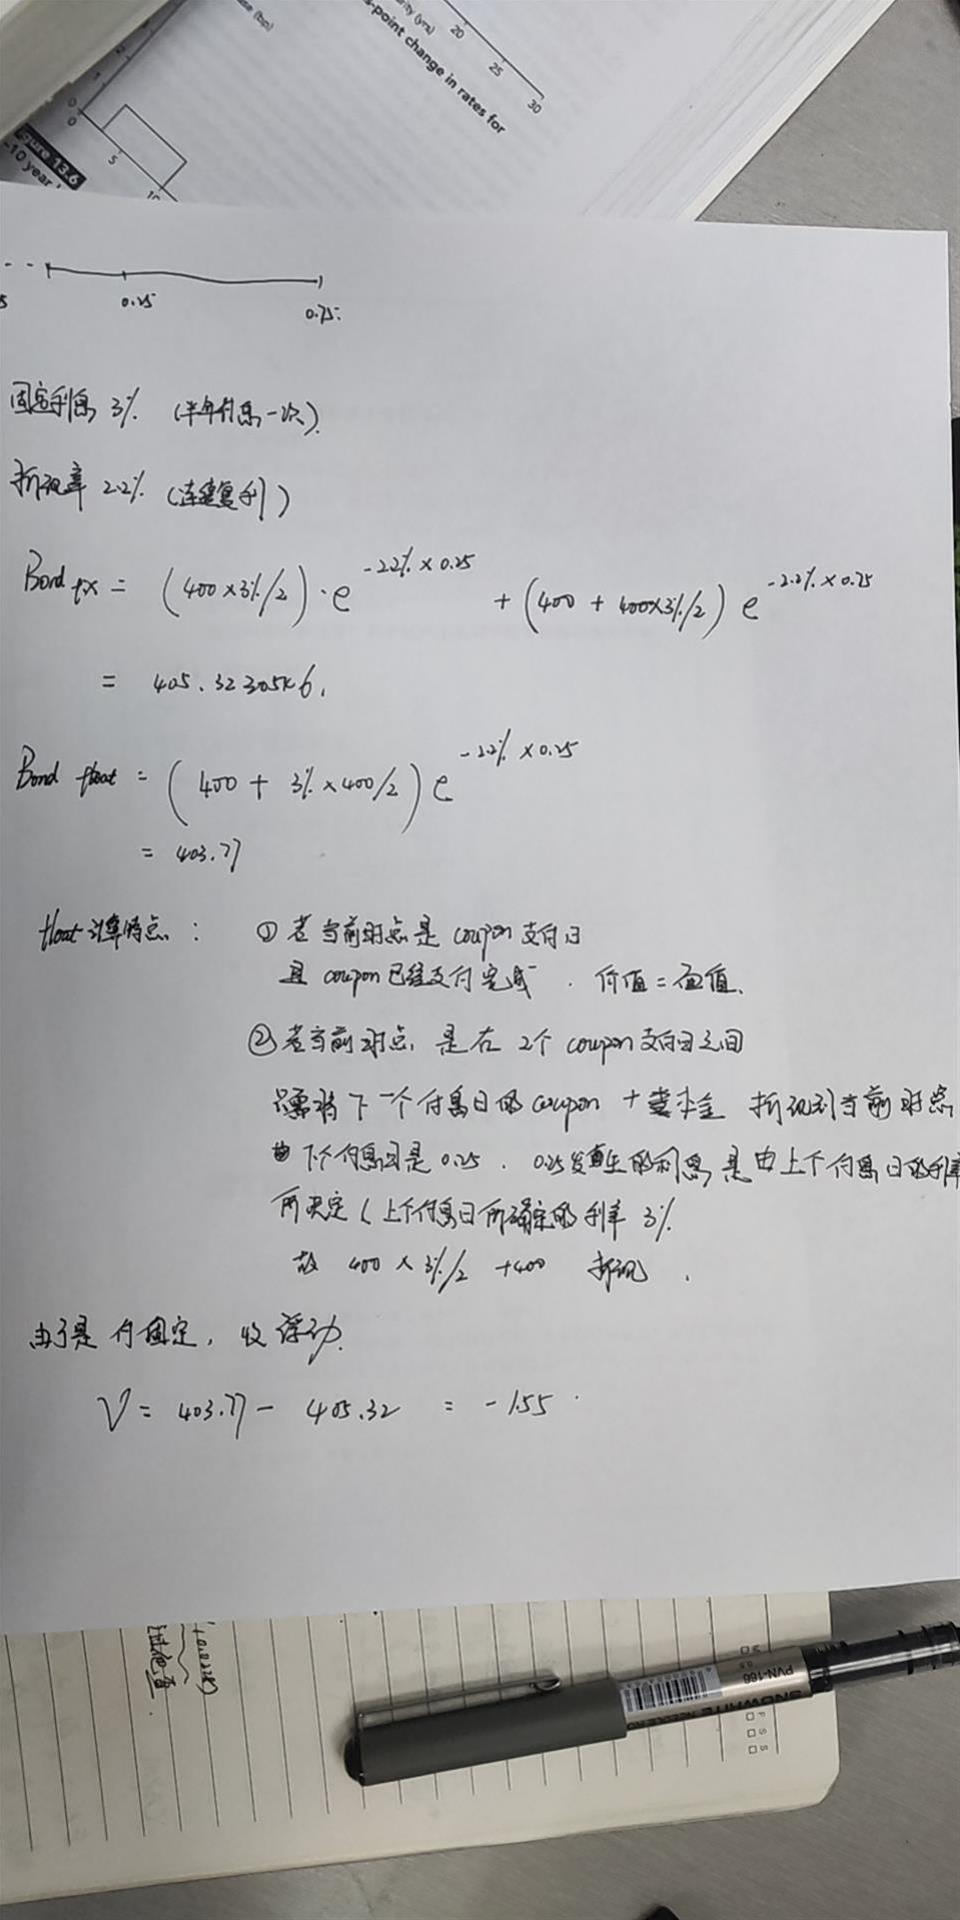 se (bp)
rity (yrs)
s-point change in rates for
20
25
30
2
1
0
0
5
10
gure 13.6
-10 year
5
0.25
0.75.
固定利息 3% (半年付息一次).
折现率 2.2% (连续复利)
Bond fix = (400×3%/2)·e^{-2.2%×0.25} + (400 + 400×3%/2) e^{-2.2%×0.75}
= 405.32305
Bond float = (400 + 3%×400/2) e^{-2.2%×0.25}
= 403.77
float 计算特点:
① 若当前时点是 coupon 支付日
且 coupon 已经支付完成. 价值=面值.
② 若当前时点, 是在 2个 coupon 支付日之间
只需将下一个付息日的 coupon + 本金 折现到当前时点
下个付息日是 0.25. 0.25发生的利息是由上个付息日的利率
所决定 (上个付息日所确定的利率 3%
故 400×3%/2 +400 折现.
由于是付固定, 收浮动.
V = 403.77 - 405.32 = -1.55
PVN-166
SNOWHITE NEEDLE
F S S